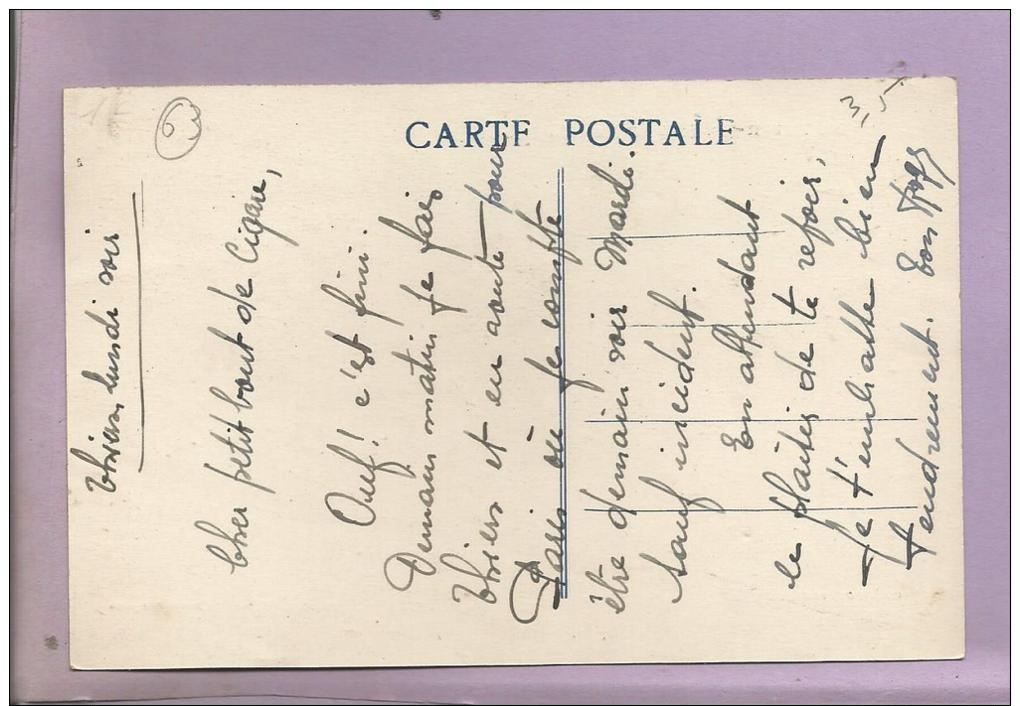 CARTE POSTALE
Thiers, lundi soir
Cher petit bout de Cigare,
Ouf! c'est fini.
Demain matin je fais
Thiers et en route pour
Paris où je compte
être demain soir Mardi.
sauf incident.
En attendant
le plaisir de te revoir,
Je t'embrasse bien
tendrement. Ton